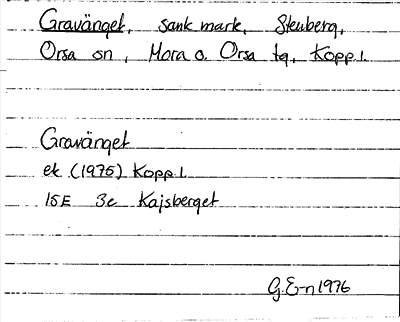 Gravänget, sank mark, Stenberg,
Orsa sn, Mora o. Orsa tg, Kopp.l.
Gravänget
ek (1975) Kopp.l.
15E 3c Kajsberget
G.E-n 1976